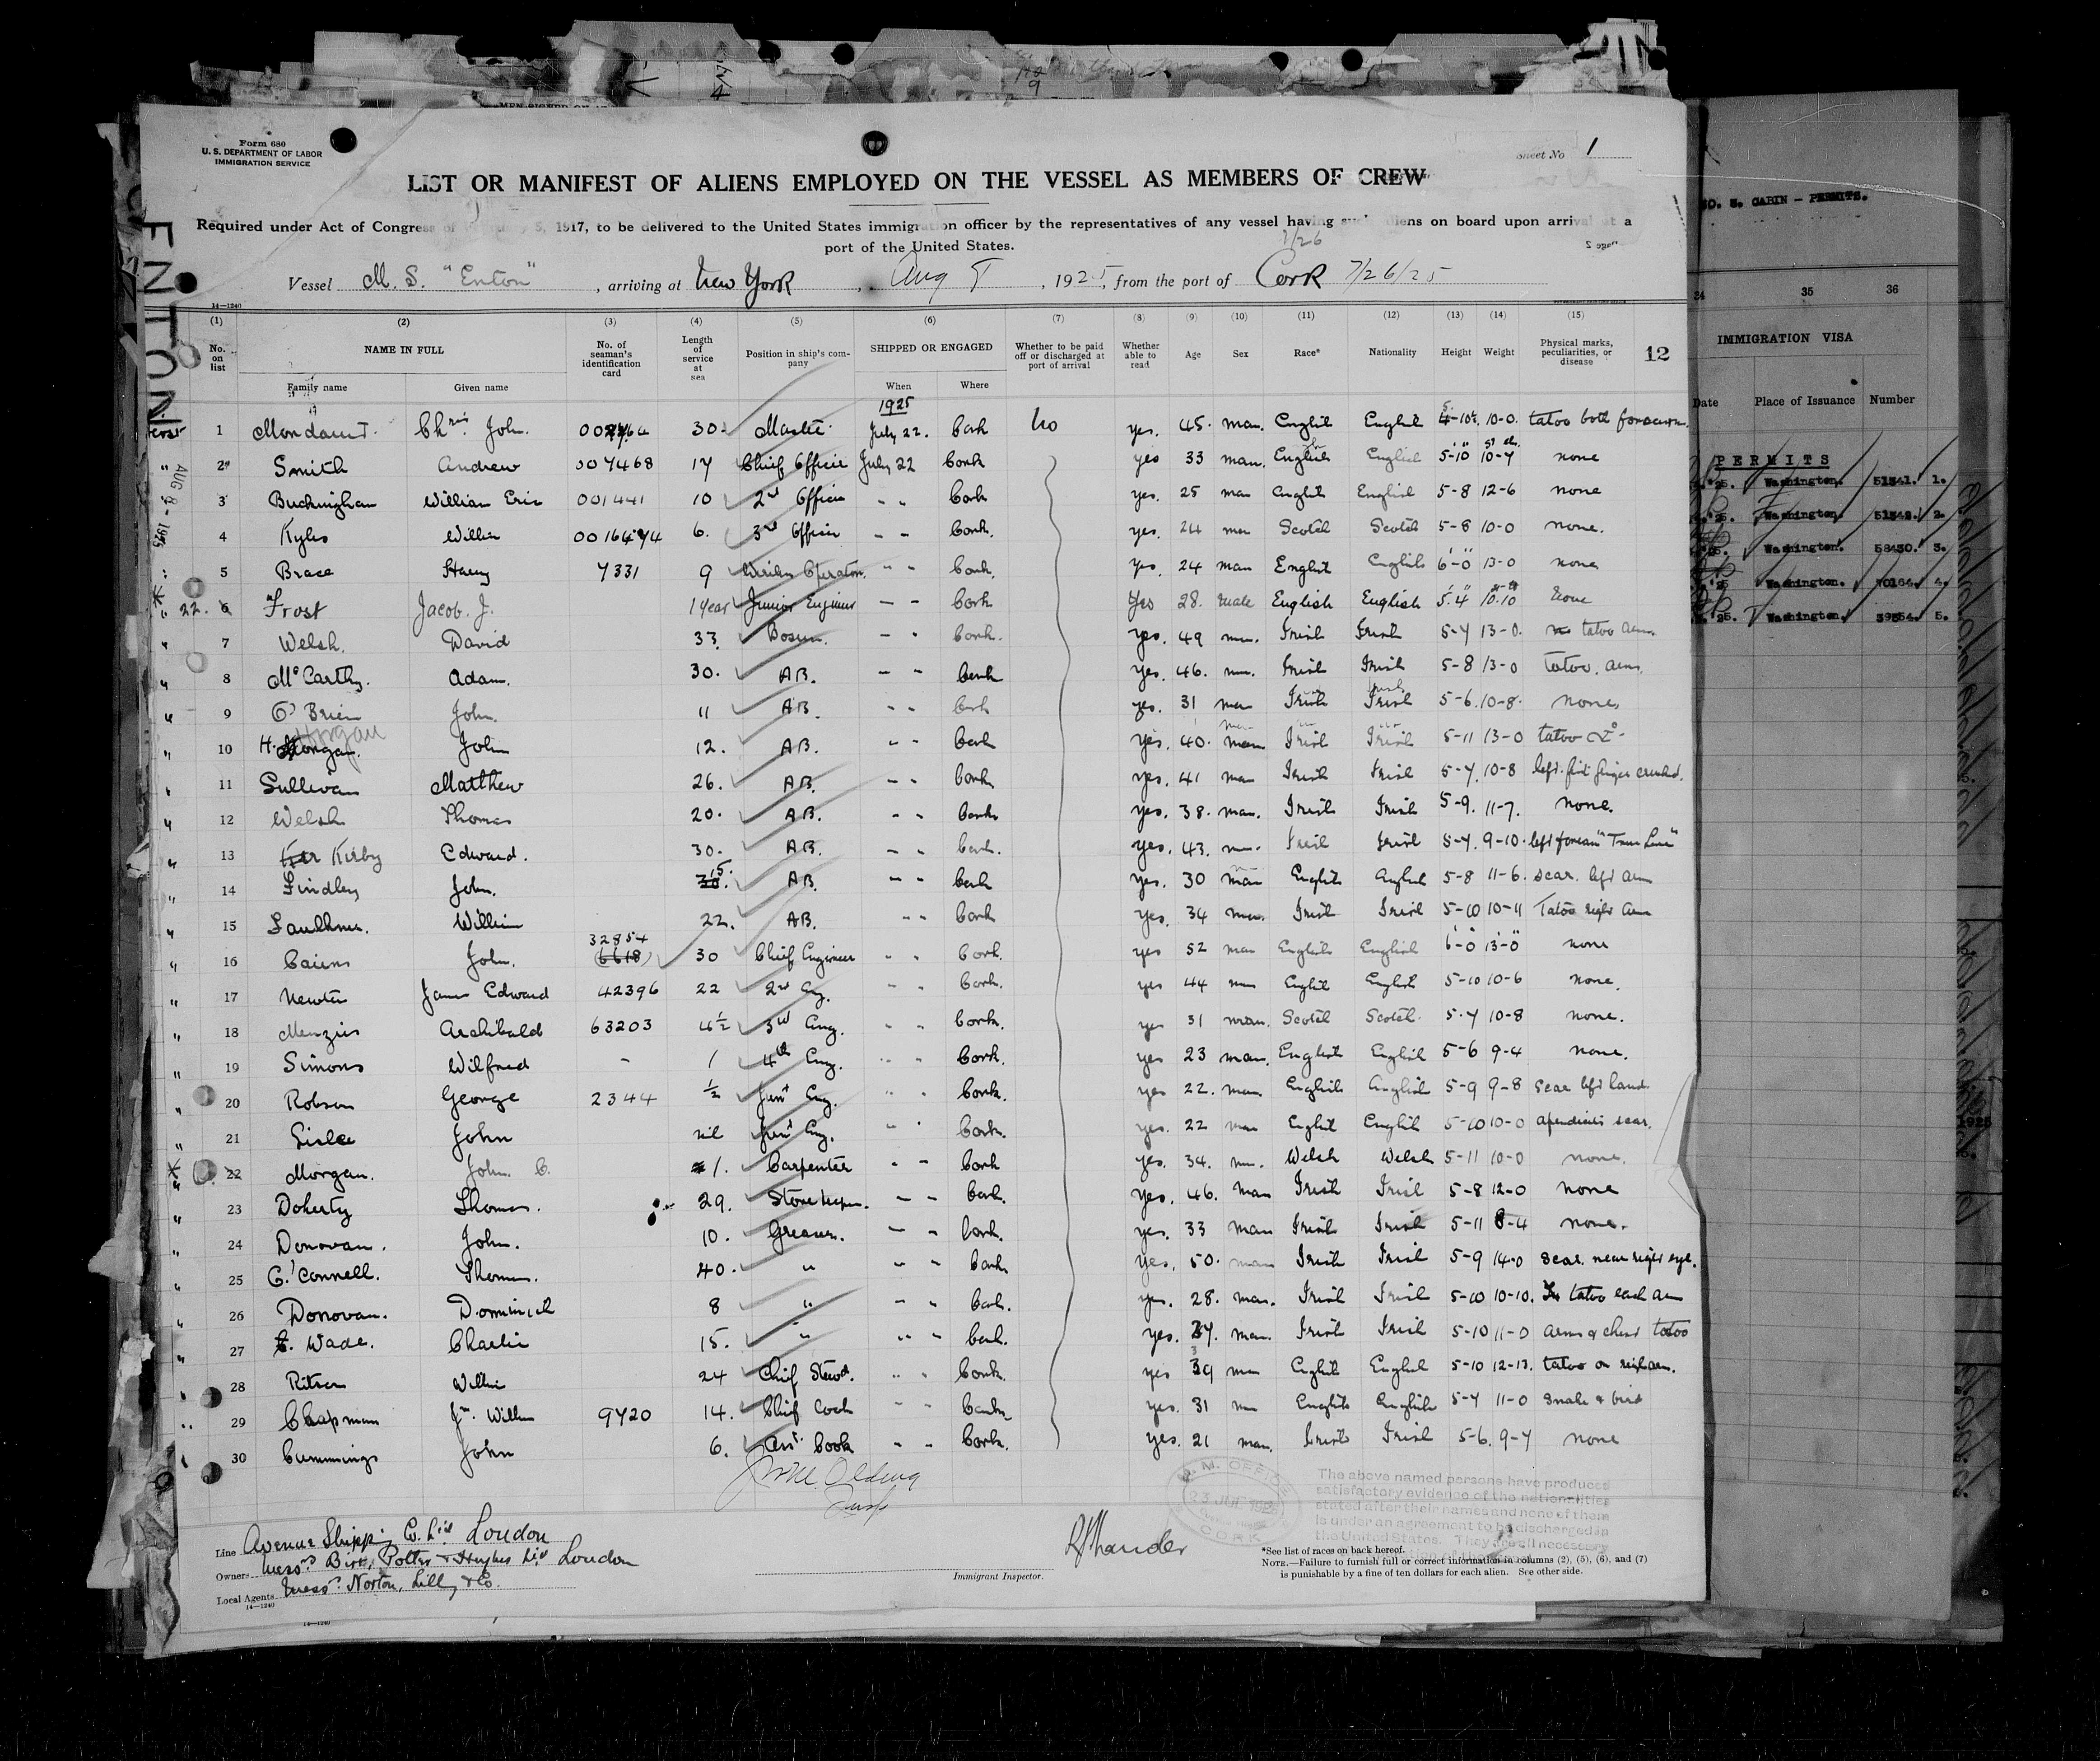 Form 680
U. S. DEPARTMENT OF LABOR
IMMIGRATION SERVICE
Sheet No 1
LIST OR MANIFEST OF ALIENS EMPLOYED ON THE VESSEL AS MEMBERS OF CREW
Required under Act of Congress 5, 1917, to be delivered to the United States immigration officer by the representatives of any vessel having such aliens on board upon arrival at a
port of the United States.
Vessel M. S. "Enton", arriving at New York, Aug 1925, from the port of Cork 7/26/25
14—1240
(1) (2) (3) (4) (5) (6) (7) (8) (9) (10) (11) (12) (13) (14) (15)
No. on list NAME IN FULL Family name Given name No. of seaman's identification card Length of service at sea Position in ship's company SHIPPED OR ENGAGED When Where Whether to be paid off or discharged at port of arrival Whether able to read Age Sex Race* Nationality Height Weight Physical marks, peculiarities, or disease 12
1925
1 John 30 July 22. Cork No yes. 45. man. English English 10-0. tatoo both forearm
2 Smith Andrew 007468 17 Chief Officer July 22 Cork yes 33 man. English English 5-10 10-7 none
3 Buckingham William Eric 001441 10 2nd Officer " " Cork yes. 25 man English English 5-8 12-6 none
4 Kyles William 6. 3rd Officer " " Cork. yes. 24 man Scotch Scotch 5-8 10-0 none.
5 Brace Harry 7331 9 Wireless Operator " " Cork. yes. 24 man English English 6-0 13-0 none
22. 6 Frost Jacob. J. 1 year Junior Engineer — — Cork Yes 28. male English English 5.4 10.10 none
7 Welsh. David 33. Bosun. — " Cork. yes. 49 man. Irish Irish 5-7 13-0. tatoo arm.
8 McCarthy. Adam. 30. AB. — " Cork yes. 46. man. Irish Irish 5-8 13-0 tatoo. arm.
9 O'Brien John. 11 AB. " " Cork yes. 31 man Irish Irish 5-6. 10-8. none
10 Horgan. John 12. AB. " " Cork yes. 40. man Irish Irish 5-11 13-0 tatoo
11 Sullivan Matthew 26. AB. — " Cork yes. 41 man Irish Irish 5-7. 10-8 left first finger crushed.
12 Welsh Thomas 20. AB. " " Cork yes. 38. man. Irish Irish 5-9. 11-7. none.
13 Kirby Edward. 30. AB. " " Cork. yes. 43. man. Irish Irish 5-7. 9-10. left forearm "True Love"
14 Lindley John. 15. AB. " " Cork yes. 30 man English English 5-8 11-6. scar. left arm
15 Faulkner. William 22. AB. " " Cork yes. 34 man. Irish Irish 5-10 10-11 Tatoo right arm
16 Cairns John. 32854 30 Chief Engineer " " Cork. yes 52 man English English 6-0 13-0 none
17 Newton James Edward 42396 22 2nd Eng. " " Cork. yes 44 man English English 5-10 10-6 none.
18 Menzies Archibald 63203 4½ 3rd Eng. " " Cork. yes 31 man. Scotch Scotch. 5-7 10-8 none.
19 Simons Wilfred - 1 4th Eng. " " Cork. yes 23 man. English English 5-6 9-4 none.
20 Robson George 2344 ½ Junr Eng. " " Cork. yes 22. man English English 5-9 9-8 Scar left hand
21 Lislee John nil Junr Eng. " " Cork. yes. 22 man English English 5-10 10-0 apendisis scar.
22 Morgan. John C. 1. Carpenter " " Cork yes. 34. man. Welsh Welsh 5-11 10-0 none.
23 Doherty Thomas. 29. Storekeeper. — " Cork. yes. 46. man Irish Irish 5-8 12-0 none
24 Donovan. John. 10. Greaser. — " Cork. yes. 33 man Irish Irish 5-11 8-4 none.
25 O'Connell. Thomas. 40. " " " Cork yes. 50. man Irish Irish 5-9 14-0 scar near right eye.
26 Donovan. Dominick 8 " " " Cork. yes. 28. man. Irish Irish 5-10 10-10. tatoo each arm
27 Wade. Charlie 15. " " " Cork. yes. man. Irish Irish 5-10 11-0 arms & chest tatoo
28 Ritson Willie 24 Chief Stewd. " " Cork. yes 39 man English English 5-10 12-13. tatoo on right arm.
29 Chapman Jn. William 9720 14. Chief Cook " " Cork yes. 31 man English English 5-7 11-0 Snake & bird
30 Cummings John 6. Asst. Cook " " Cork. yes. 21 man. Irish Irish 5-6. 9-7 none
ENTON
AUG 8 - 1925
The above named persons have produced
satisfactory evidence of the nationalities
stated after their names and none of them
is under an agreement to be discharged in
the United States. They are all necessary
Line Avenue Shippg Co. Ltd London
Owners Messrs Birt, Potter & Hughes Ltd London
Local Agents Messrs. Norton, Lilly & Co.
14—1240
Immigrant Inspector.
*See list of races on back hereof.
NOTE.—Failure to furnish full or correct information in columns (2), (5), (6), and (7)
is punishable by a fine of ten dollars for each alien. See other side.
CABIN - PERMITS.
34 35 36
IMMIGRATION VISA
Date Place of Issuance Number
PERMITS
25. Washington. 51541. 1.
25. Washington. 51542. 2.
25. Washington. 58430. 3.
25 Washington. 70164. 4.
25. Washington. 39554. 5.